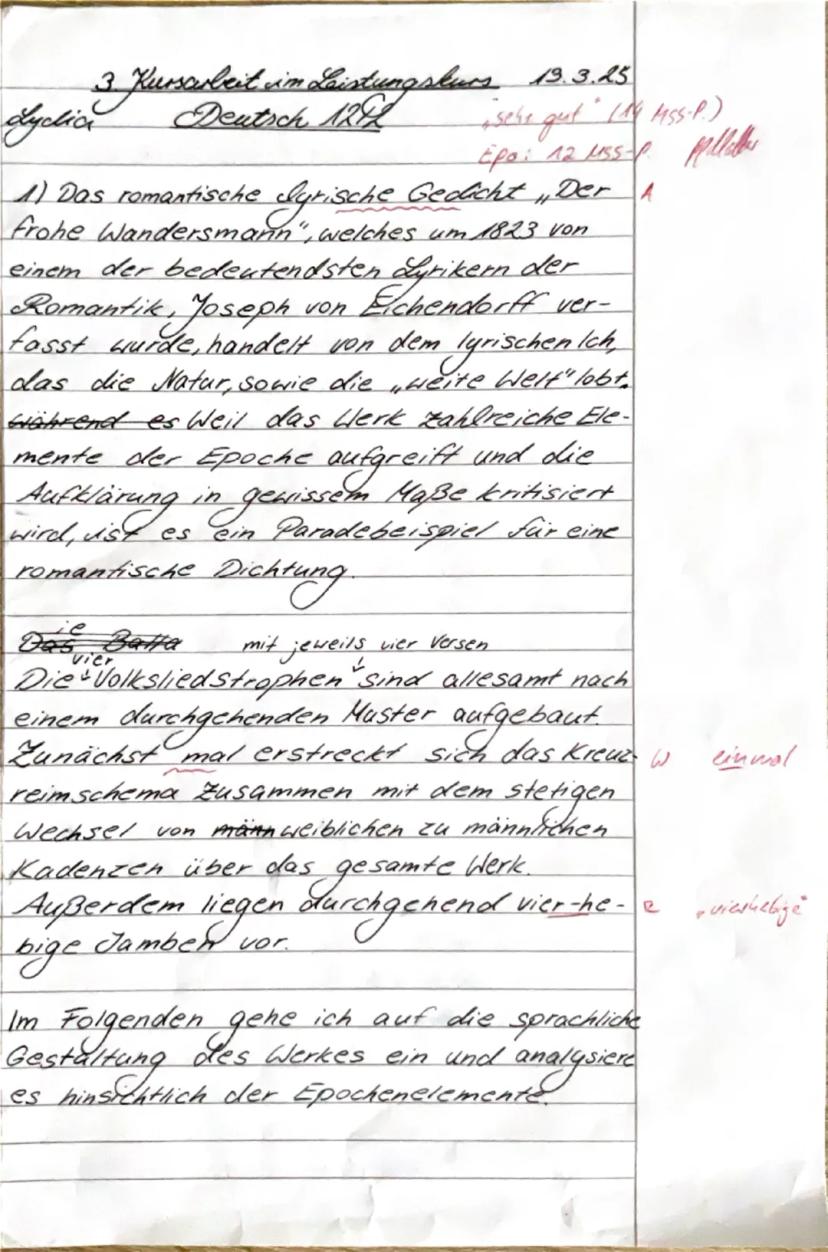 3. Kursarbeit im Leistungskurs 19.3.25
Lydia Deutsch 12
„sehr gut" (14 MSS-P.)
Epo: 12 MSS-P.
1) Das romantische lyrische Gedicht „Der A
frohe Wandersmann", welches um 1823 von
einem der bedeutendsten Lyrikern der
Romantik, Joseph von Eichendorff ver-
fasst wurde, handelt von dem lyrischen Ich,
das die Natur, sowie die „weite Welt" lobt.
während es Weil das Werk zahlreiche Ele-
mente der Epoche aufgreift und die
Aufklärung in gewissem Maße kritisiert
wird, ist es ein Paradebeispiel für eine
romantische Dichtung.
mit jeweils vier Versen
vier
Die Volksliedstrophen sind allesamt nach
einem durchgehenden Muster aufgebaut.
Zunächst mal erstreckt sich das Kreuz- W einmal
reimschema zusammen mit dem stetigen
Wechsel von männ weiblichen zu männlichen
Kadenzen über das gesamte Werk.
Außerdem liegen durchgehend vier-he- R „vierhebige"
bige Jamben vor.
Im Folgenden gehe ich auf die sprachliche
Gestaltung des Werkes ein und analysiere
es hinsichtlich der Epochenelemente.